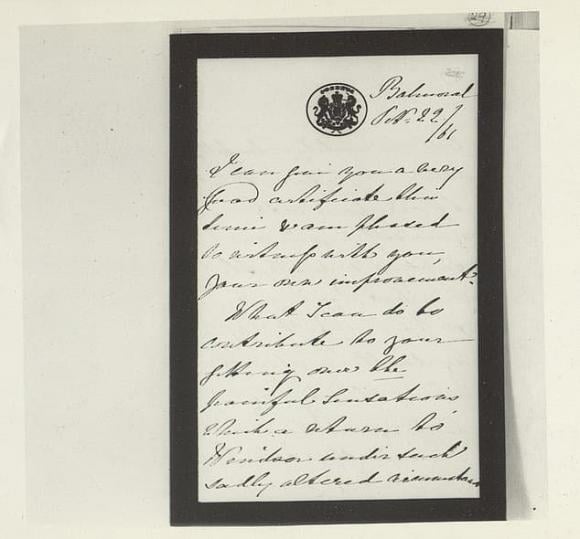 24
Balmoral
Octr. 22/
/61
I can give you a very
good certificate this
time & am pleased
to witness with you,
your own improvement.
What I can do to
contribute to your
getting over the
painful sensations
which a return to
Windsor under such
sadly altered circumstances